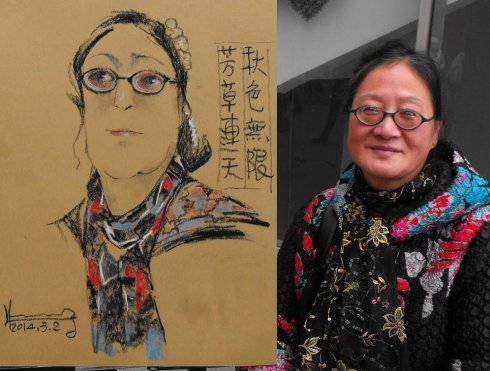 秋色無限
芳草連天
2014.3.2